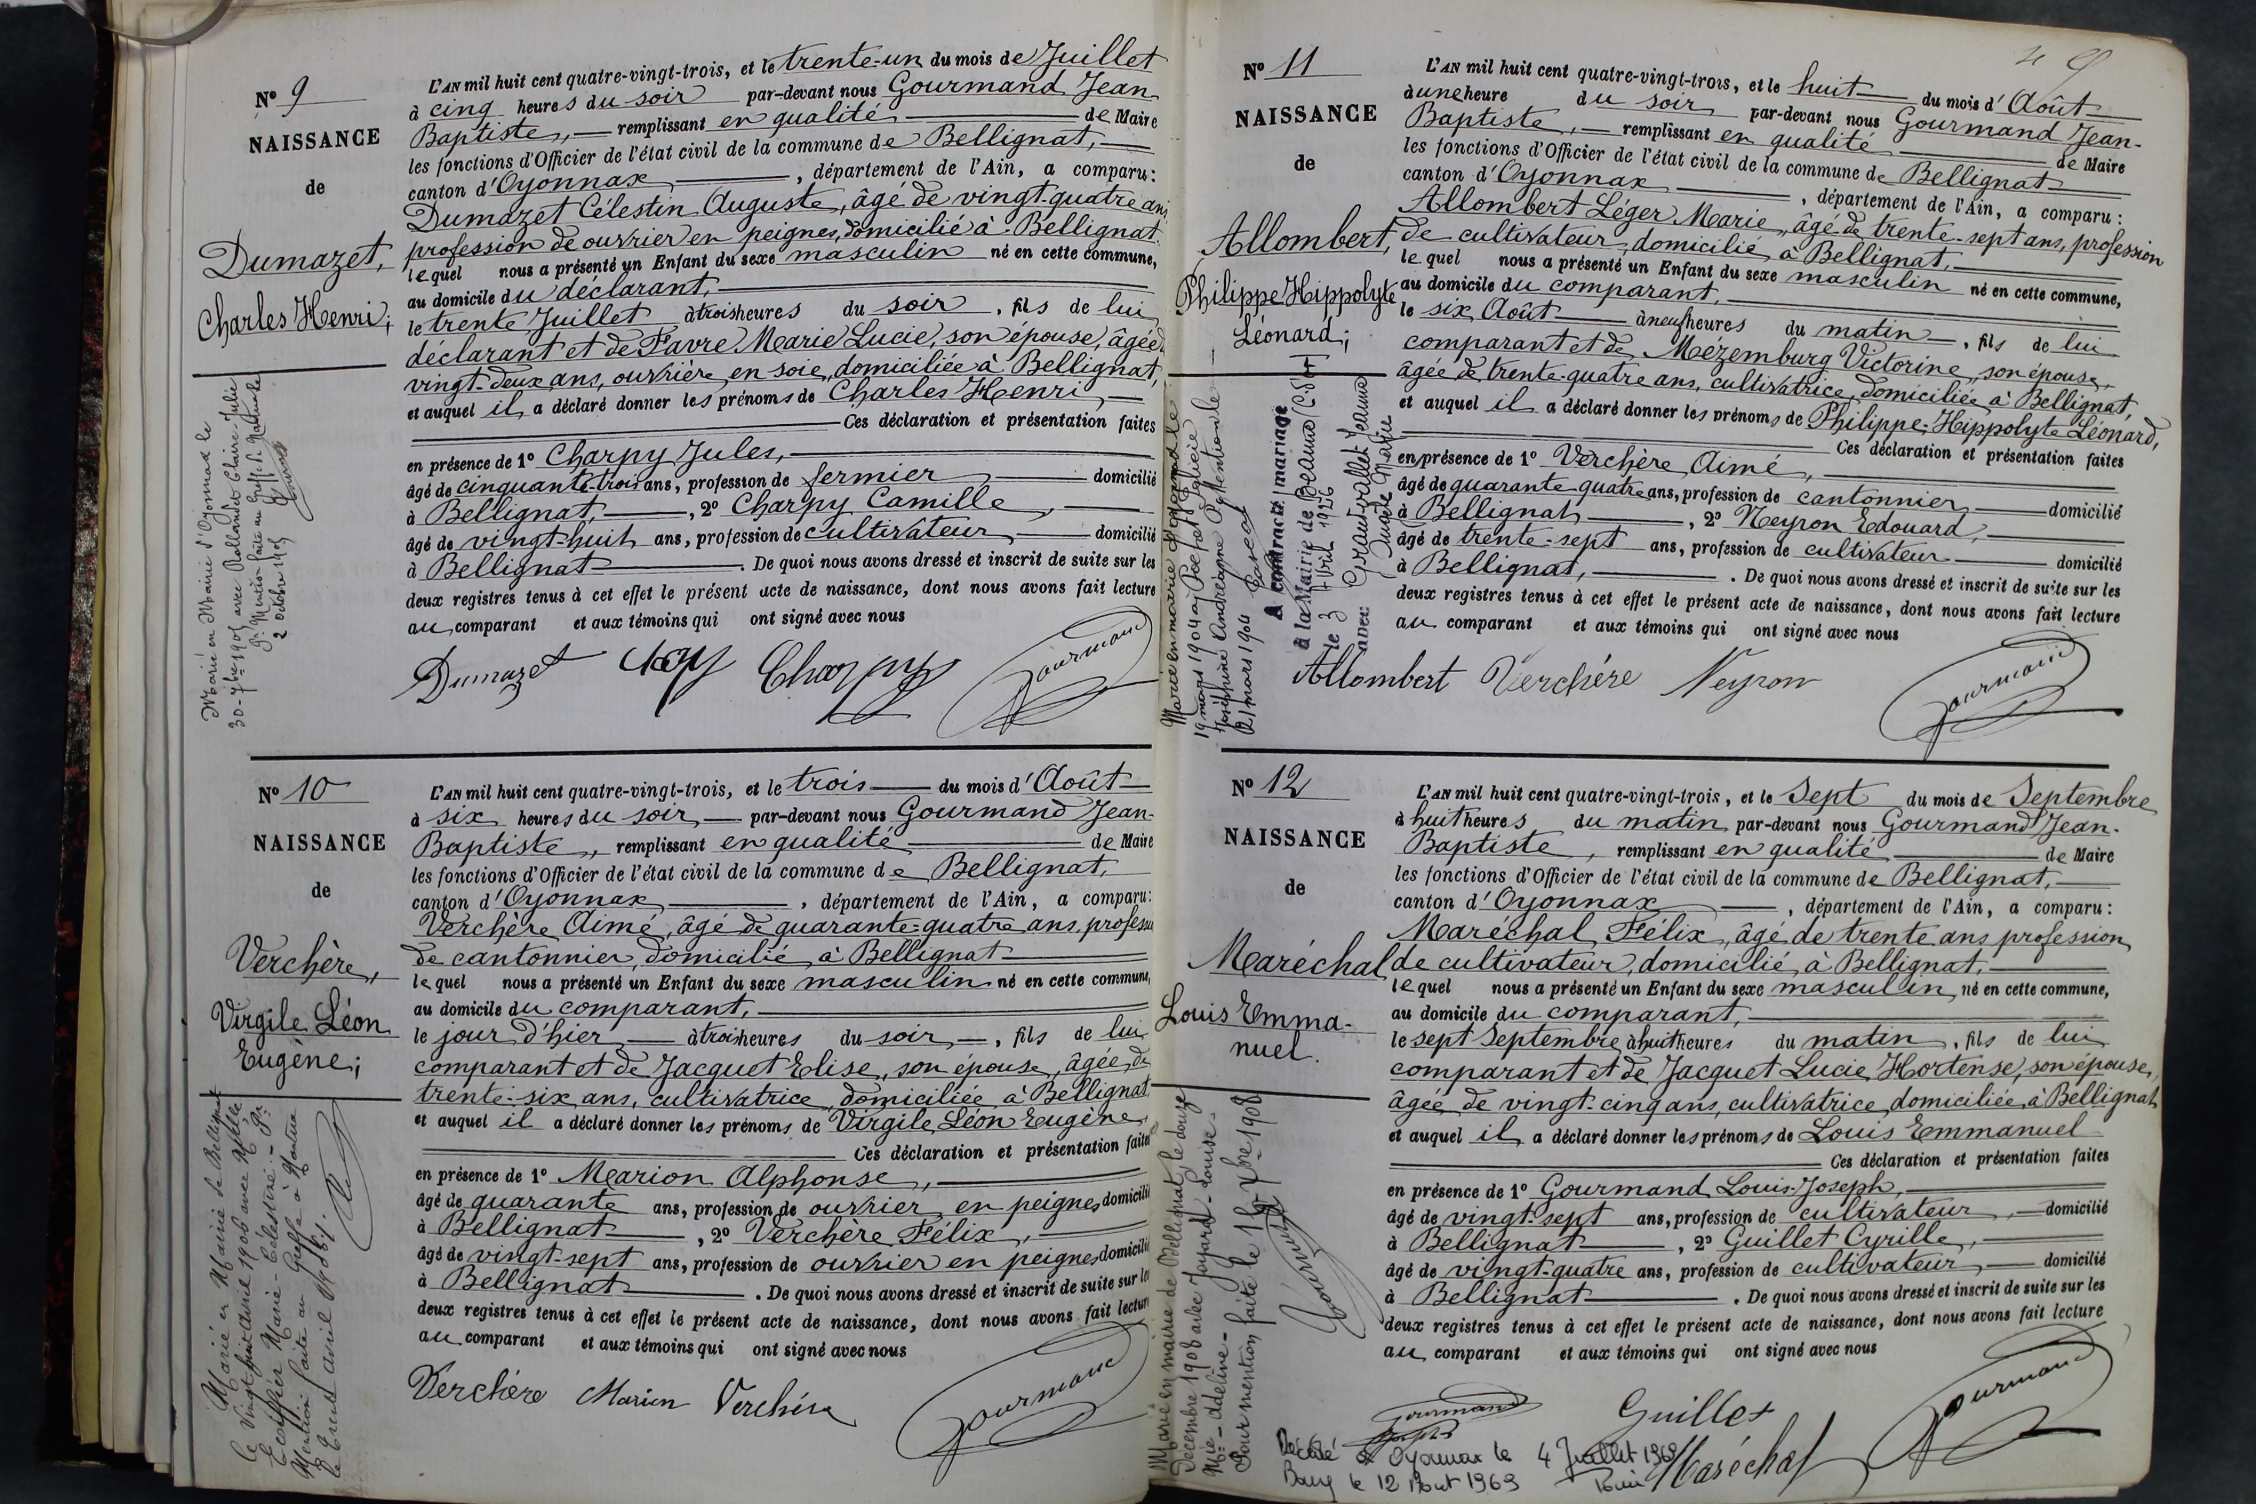 N° 9
NAISSANCE
de
Dumazet,
Charles Henri;
L'AN mil huit cent quatre-vingt-trois, et le trente-un du mois de Juillet
à cinq heures du soir par-devant nous Gourmand Jean
Baptiste, remplissant en qualité de Maire
les fonctions d'Officier de l'état civil de la commune de Bellignat,
canton d'Oyonnax, département de l'Ain, a comparu:
Dumazet Célestin Auguste, âgé de vingt-quatre ans
profession de ouvrier en peignes, domicilié à Bellignat.
lequel nous a présenté un Enfant du sexe masculin né en cette commune,
au domicile du déclarant,
le trente Juillet à trois heures du soir, fils de lui
déclarant et de Favre Marie Lucie, son épouse, âgée
vingt-deux ans, ouvrière en soie, domiciliée à Bellignat,
et auquel il a déclaré donner les prénoms de Charles Henri,
Ces déclaration et présentation faites
en présence de 1° Charpy Jules,
âgé de cinquante-trois ans, profession de fermier domicilié
à Bellignat, 2° Charpy Camille,
âgé de vingt-huit ans, profession de cultivateur domicilié
à Bellignat. De quoi nous avons dressé et inscrit de suite sur les
deux registres tenus à cet effet le présent acte de naissance, dont nous avons fait lecture
au comparant et aux témoins qui ont signé avec nous
Dumazet Charpy Gourmand
Marié en Mairie d'Oyonnax le
30-7bre 1905 avec Rollandet Claire-Julie
Pr. Mention faite au Greffe de Nantua le
2 octobre 1905
N° 10
NAISSANCE
de
Verchère,
Virgile Léon
Eugène;
L'AN mil huit cent quatre-vingt-trois, et le trois du mois d'Août
à six heures du soir, par-devant nous Gourmand Jean-
Baptiste, remplissant en qualité de Maire
les fonctions d'Officier de l'état civil de la commune de Bellignat,
canton d'Oyonnax, département de l'Ain, a comparu:
Verchère Aimé, âgé de quarante-quatre ans, profession
de cantonnier, domicilié à Bellignat
lequel nous a présenté un Enfant du sexe masculin né en cette commune,
au domicile du comparant,
le jour d'hier à trois heures du soir, fils de lui
comparant et de Jacquet Elise, son épouse, âgée de
trente-six ans, cultivatrice, domiciliée à Bellignat
et auquel il a déclaré donner les prénoms de Virgile Léon Eugène,
Ces déclaration et présentation faites
en présence de 1° Marion Alphonse,
âgé de quarante ans, profession de ouvrier en peignes domicilié
à Bellignat, 2° Verchère Félix,
âgé de vingt-sept ans, profession de ouvrier en peignes domicilié
à Bellignat. De quoi nous avons dressé et inscrit de suite sur les
deux registres tenus à cet effet le présent acte de naissance, dont nous avons fait lecture
au comparant et aux témoins qui ont signé avec nous
Verchère Marion Verchère Gourmand
Marié en Mairie de Bellignat
le Vingt huit avril 1906 avec Melle
Ecoiffier Marie-Célestine.- Pr.
Mention faite au Greffe à Nantua
le trente avril
N° 11
NAISSANCE
de
Allombert,
Philippe Hippolyte
Léonard;
L'AN mil huit cent quatre-vingt-trois, et le huit du mois d'Août
à une heure du soir par-devant nous Gourmand Jean-
Baptiste, remplissant en qualité de Maire
les fonctions d'Officier de l'état civil de la commune de Bellignat
canton d'Oyonnax, département de l'Ain, a comparu:
Allombert Léger Marie, âgé de trente-sept ans, profession
de cultivateur, domicilié à Bellignat,
lequel nous a présenté un Enfant du sexe masculin né en cette commune,
au domicile du comparant,
le six Août à neuf heures du matin, fils de lui
comparant et de Mézemburg Victorine, son épouse,
âgée de trente-quatre ans, cultivatrice, domiciliée à Bellignat,
et auquel il a déclaré donner les prénoms de Philippe-Hippolyte Léonard,
Ces déclaration et présentation faites
en présence de 1° Verchère Aimé,
âgé de quarante-quatre ans, profession de cantonnier domicilié
à Bellignat, 2° Neyron Edouard,
âgé de trente-sept ans, profession de cultivateur domicilié
à Bellignat,. De quoi nous avons dressé et inscrit de suite sur les
deux registres tenus à cet effet le présent acte de naissance, dont nous avons fait lecture
au comparant et aux témoins qui ont signé avec nous
Allombert Verchère Neyron Gourmand
19 mars 1904
21 mars 1904
A contracté mariage
à la Mairie de Beaune (C.d'Or)
le 3 Avril 1926
avec Jeanne
Marie
N° 12
NAISSANCE
de
Maréchal
Louis Emma-
nuel.
L'AN mil huit cent quatre-vingt-trois, et le Sept du mois de Septembre
à huit heures du matin par-devant nous Gourmand Jean-
Baptiste, remplissant en qualité de Maire
les fonctions d'Officier de l'état civil de la commune de Bellignat,
canton d'Oyonnax, département de l'Ain, a comparu:
Maréchal Félix, âgé de trente ans profession
de cultivateur, domicilié à Bellignat,
lequel nous a présenté un Enfant du sexe masculin né en cette commune,
au domicile du comparant,
le sept Septembre à huit heures du matin, fils de lui
comparant et de Jacquet Lucie Hortense, son épouse,
âgée de vingt-cinq ans, cultivatrice, domiciliée à Bellignat
et auquel il a déclaré donner les prénoms de Louis Emmanuel
Ces déclaration et présentation faites
en présence de 1° Gourmand Louis-Joseph,
âgé de vingt-sept ans, profession de cultivateur, domicilié
à Bellignat, 2° Guillet Cyrille,
âgé de vingt-quatre ans, profession de cultivateur, domicilié
à Bellignat. De quoi nous avons dressé et inscrit de suite sur les
deux registres tenus à cet effet le présent acte de naissance, dont nous avons fait lecture
au comparant et aux témoins qui ont signé avec nous
Gourmand Guillet Gourmand
Maréchal
Décédé à Oyonnax le 4 Juillet 1969
Bourg le 12 Août 1969
Marié en mairie de Bellignat le douze
Décembre 1908 avec Joyard-Louise-
Mie-Adeline-
Pour mention faite le 1908